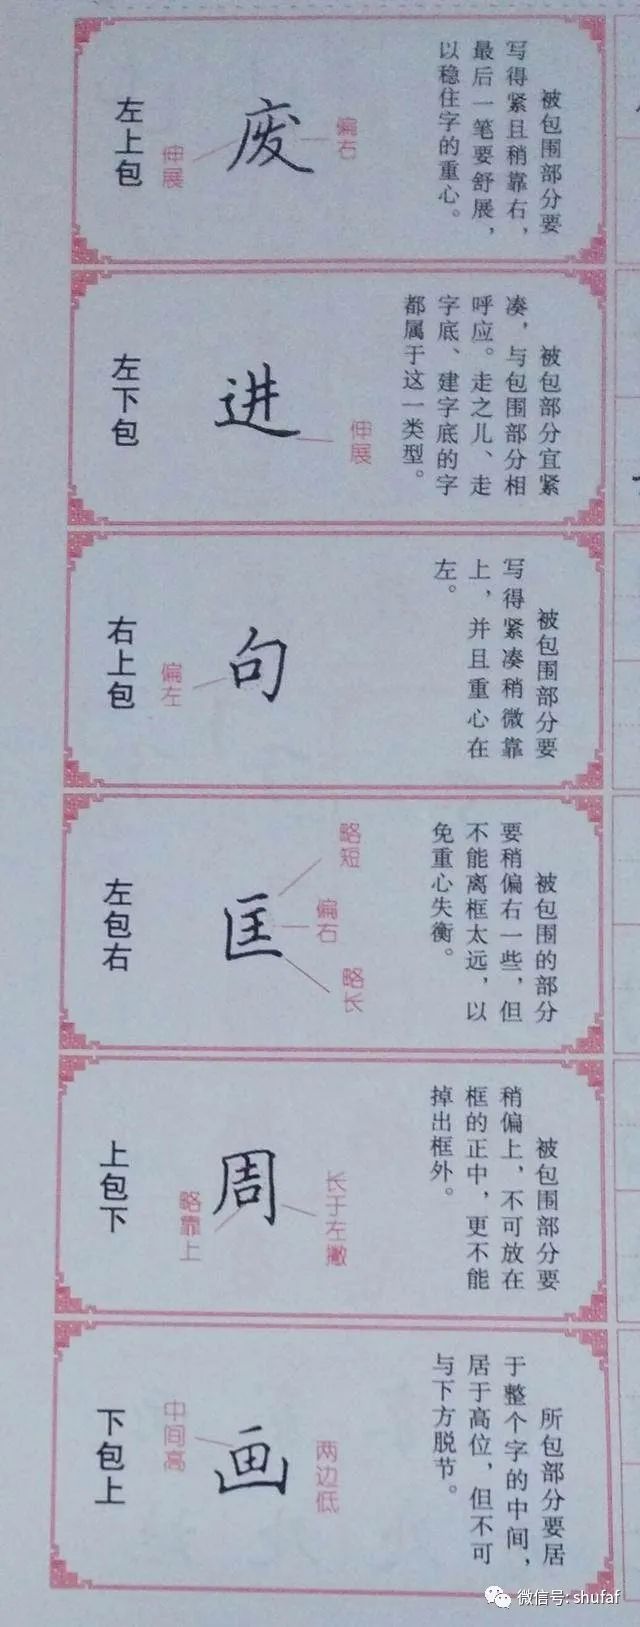 左上包
废
伸展
偏右
被包围部分要
写得紧且稍靠右，
最后一笔要舒展，
以稳住字的重心。
左下包
进
伸展
被包部分宜紧
凑，与包围部分相
呼应。走之儿、走
字底、建字底的字
都属于这一类型。
右上包
句
偏左
被包围部分要
写得紧凑稍微靠
上，并且重心在
左。
左包右
匡
略短
偏右
略长
被包围的部分
要稍偏右一些，但
不能离框太远，以
免重心失衡。
上包下
周
略靠上
长于左撇
被包围部分要
稍偏上，不可放在
框的正中，更不能
掉出框外。
下包上
画
中间高
两边低
所包部分要居
于整个字的中间，
居于高位，但不可
与下方脱节。
微信号: shufaf